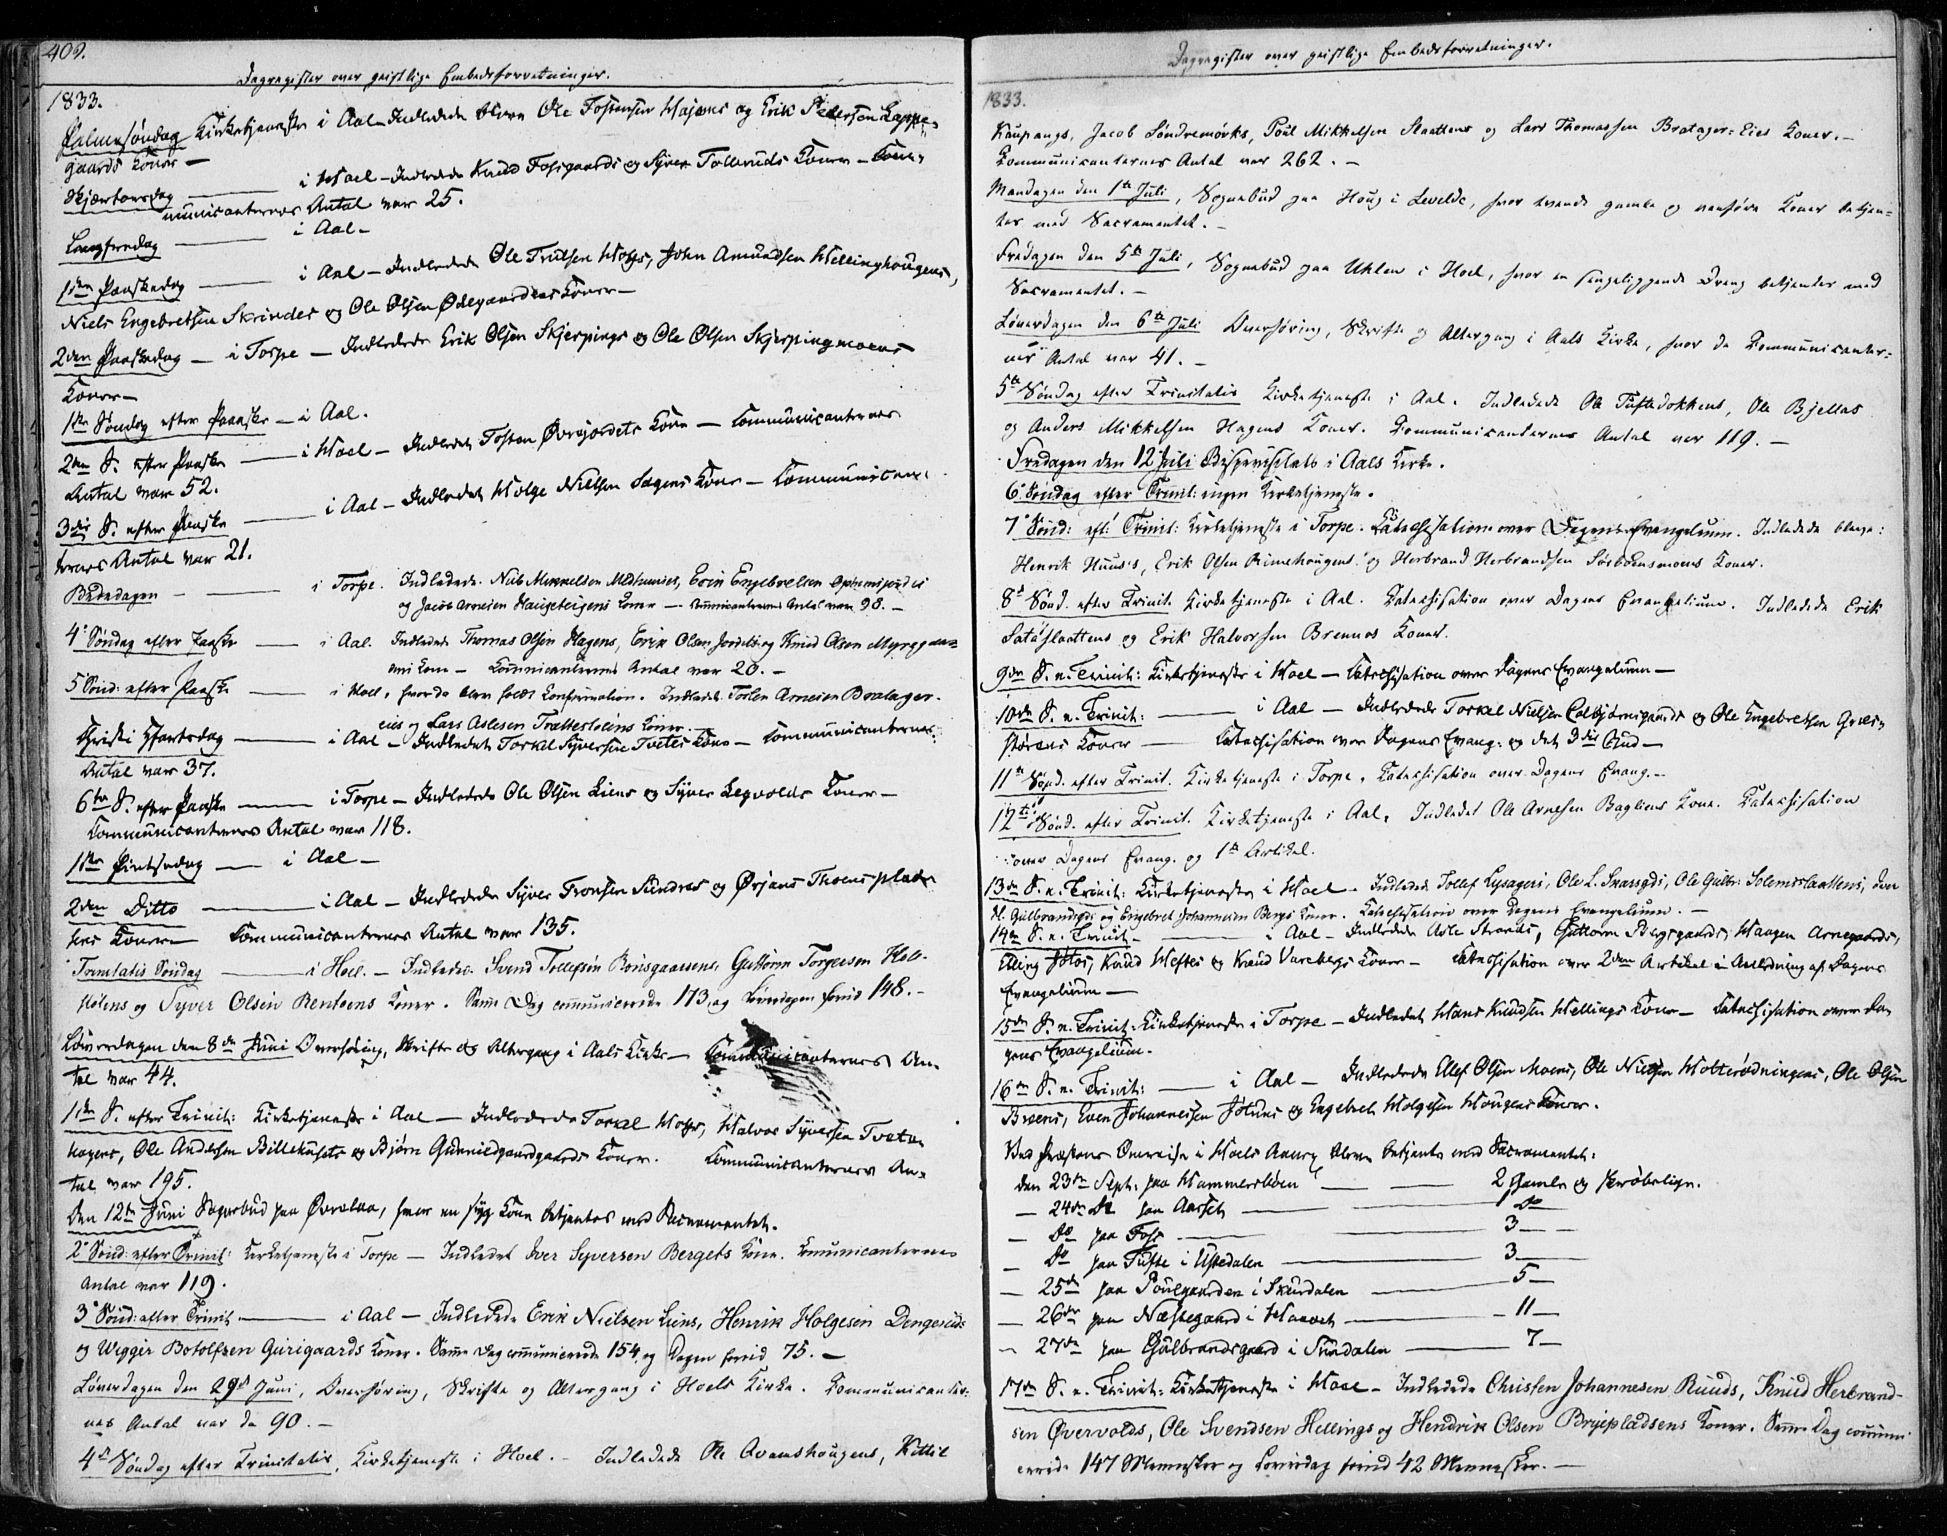 409.
Dagregister over geistlige Embedsforretninger.
1833.
Palmesøndag Kirketjeneste i Aal – Indledede bleve Ole Tostensen og Erik Pedersen Lappe-
gaards Koner –
Skjærtorsdag ——— i Hoel – Indledede Knud Fossgaards og Syver Tollerüds Koner – Com-
municanternes Antal var 25.
Langfredag ——— i Aal –
1ste Paaskedag ——— i Aal – Indledede Ole Trulsen John Amundsen Hellinghougens,
Niels Engebretsen Skrindes og Ole Olsen Ødegaardens Koner –
2den Paaskedag – i Torpe – Indledede Erik Olsen Skjerpings og Ole Olsen Skjerpingmoens
Koner –
1ste Søndag efter Paaske – i Aal.
2den S. efter Paaske ——— i Hoel – Indledet Tosten Øvrejordets Kone – Communicanternes
Antal var 52.
3die S. efter Paaske ——— i Aal – Indledet Holge Nielsen Kone – Communican-
ternes Antal var 21.
Bededagen ——— i Torpe. Indledede Niels Erik Engebretsen
og Jacob Arnesen Haugeteigens Koner — Communicanternes Antal var 98. –
4de Søndag efter Paaske ——— i Aal. Indledede Thomas Olsen Hagens, Erik Olsen og Knud Olsen
Koner – Communicanternes Antal var 20. –
5 Sønd: efter Paaske ——— i Hoel, hvor da blev holdt Confirmation. Indledede Torsten Arnesen Bratager-
eies og Lars Aslesen Trættestølens Koner.
Christi Himmelfartsdag ——— i Aal – Indledet Torkel Syversen Tvetes Kone – Communicanternes
Antal var 37.
6te S. efter Paaske ——— i Torpe – Indledede Ole Olsen Liens og Syver Legvolds Koner –
Communicanternes Antal var 118.
1ste Pintsedag —— i Aal –
2den Ditto ——— i Aal – Indledede Syver Tronsen Sundres og Ørjans Thoenspladsens
Koner Communicanternes Antal var 135.
Trinitatis Søndag ——— i Hoel. – Indledede Svend Tollefsen Guttorm Torgersen
og Syver Olsen Rentoens Koner. Samme Dag communicerede 173, og Løverdagen forud 148. –
Løverdagen den 8de Juni Overhøring, Skrifte og Altergang i Aals Kirke – Communicanternes An-
tal var 44.
1ste S. efter Trinit: Kirketjeneste i Aal – Indledede Torkel Halvor Syversen Tveta-
hagens, Ole Andersen Billehusets og Bjørn Gunnildgaardgaards Koner. Communicanternes An-
tal var 195.
Den 12te Juni Sognebud paa Øvrelaa, hvor en syg Kone betjentes med Sacramentet.
2 Sønd: efter Trinit: Kirketjeneste i Torpe – Indledet Iver Syversen Bergets Kone. Communicanternes
Antal var 119.
3 Sønd: efter Trinit. ——— i Aal – Indledede Erik Nielsen Liens, Henrik Holgesen Dengeruds
og Wiggir Botolfsen Gurigaards Koner. Samme Dag communicerede 154 og Dagen forud 75. –
Løverdagen den 29de Juni, Overhøring, Skrifte og Altergang i Hoels Kirke. Communicanter-
nes Antal var da 90. –
4de Søndag efter Trinitatis, Kirketjeneste i Hoel. – Indledede Ole Kittil
Dagregister over geistlige Embedsforretninger.
1833.
Kaupangs, Jacob Søndremørks, Poul Mikkelsen Slaattens og Lars Thomassen Bratager-Eies Koner. –
Communicanternes Antal var 262. –
Mandagen den 1ste Juli, Sognebud paa Houg i Levelde, hvor tvende gamle og vanføre Koner betjen-
tes med Sacramentet. –
Fredagen den 5te Juli, Sognebud paa Uhlen i Hoel, hvor en sengeliggende Dreng betjentes med
Sacramentet. –
Løverdagen den 6te Juli Overhøring, Skrifte og Altergang i Aals Kirke, hvor da Communicanter-
nes Antal var 41. –
5te Søndag efter Trinitatis Kirketjeneste i Aal. Indledede Ole Tuftedokkens, Ole Bjellas
og Anders Mikkelsen Hagens Koner. Communicanternes Antal var 119. –
Fredagen den 12 Juli Bispevisitats i Aals Kirke.
6 Søndag efter Trinit: ingen Kirketjeneste.
7 Sønd: eft: Trinit: Kirketjeneste i Torpe. Catechisation over Dagens Evangelium. Indledede bleve:
Henrik Huus's, Erik Olsen Rimehougens og Herbrand Herbrandsen Sørboensmoens Koner.
8de Sønd. efter Trinit. Kirketjeneste i Aal. Catechisation over Dagens Evangelium. Indledede Erik
Sataslaattens og Erik Halvorsen Brennos Koner.
9de S. e. Trinit: Kirketjeneste i Hoel – Catechisation over Dagens Evangelium –
10de S. e. Trinit: ——— i Aal – Indledede Torkel Nielsen Colbjørnsgaards og Ole Engebretsen
Koner — Catechisation over Dagens Evang: og det 3die Bud –
11te Sønd. efter Trinit. Kirketjeneste i Torpe, Catechisation over Dagens Evang. –
12te Sønd. efter Trinit. Kirketjeneste i Aal, Indledet Ole Arnesen Bagliens Kone. Catechisation
over Dagens Evang. og 1ste Artikel.
13de S. e. Trinit: Kirketjeneste i Hoel – Indledede Tollef Lysageri, Ole L. Ole Gulbr: Solemslaattens, Iver
H. Gulbrandsgds og Engebret Johannesen Bergs Koner. Catechisation over Dagens Evangelium. –
14de S. e. Trinit – ——— i Aal – Indledede Asle Strands, Guttorm Bergsgaards, Haagen Arnegaards,
Elling Jølos, Knud Heftes og Knud Varebergs Koner – Catechisation over 2den Artikel i Anledning af Dagens
Evangelium –
15de S. e. Trinit: Kirketjeneste i Torpe – Indledet Hans Knudsen Hellings Kone – Catechisation over Da-
gens Evangelium.
16de S. e. Trinit: —— i Aal – Indledede Ellef Olsen Moens, Ole Nielsen Holterødningens, Ole Olsen
Breens, Even Johannesen og Engebret Holgesen Hougens Koner.
Ved Præstens Omreise i Hoels Annex bleve betjente med Sacramentet:
den 23de Sept: paa Hammersbøen ——— 2 Gamle og skrøbelige.
– 24de Do paa Aarset ——— 1 Do
– Do paa Foss ——— 3 —
– Do paa Tufte i Ustedalen ——— 3 —
– 25de paa Poulgaarden i Skurdalen ——— 5 —
– 26de paa Næstegaard i Haavet ——— 11 —
– 27de paa Gulbrandsgaard i Sundalen ——— 7 —
17de S. e. Trinit: Kirketjeneste i Hoel – Indledede Christen Johannesen Ruuds, Knud Herbrand-
sen Øvervolds, Ole Svendsen Hellings og Hendrik Olsen Brujepladsens Koner. Samme Dag commu-
nicerede 147 Mennesker og Løverdag forud 42 Mennesker. –